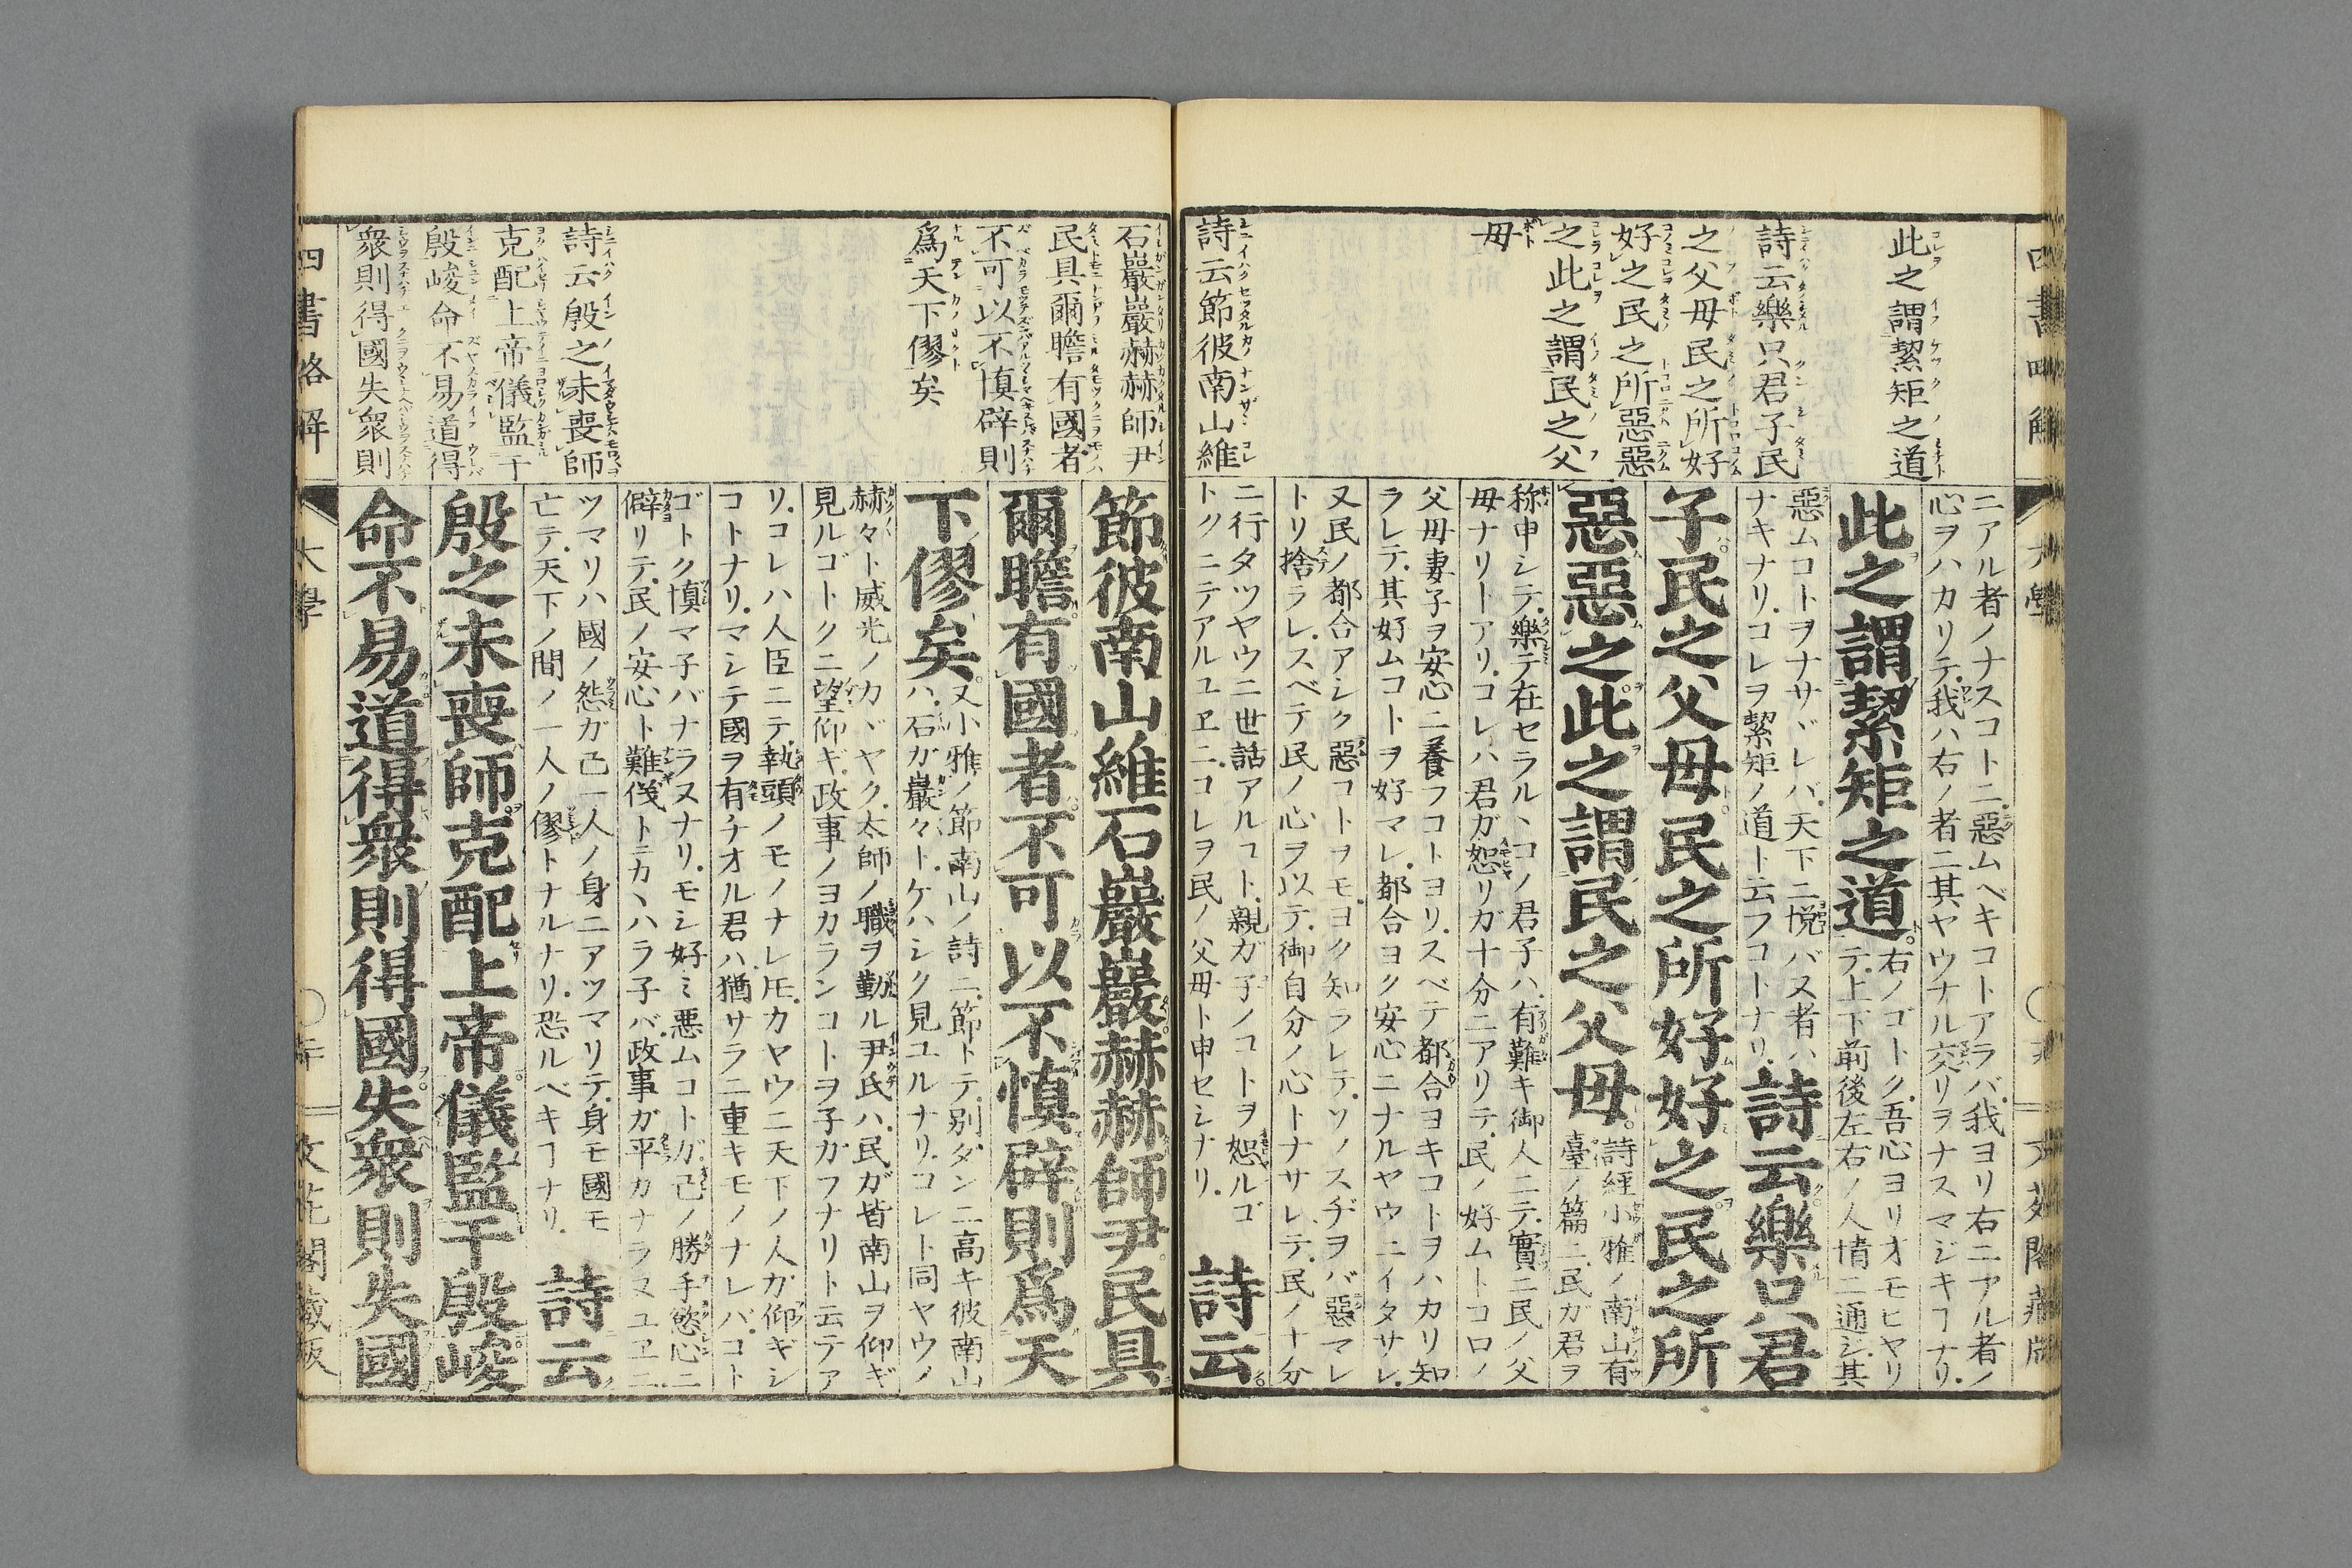 此之謂絜矩之道
詩云樂只君子民
之父母民之所好
好之民之所惡惡
之此之謂民之父
母
詩云節彼南山維
ニアル者ノナスコトニ惡ムベキコトアラバ我ヨリ右ニアル者ノ
心ヲハカリテ我ハ右ノ者ニ其ヤウナル交リヲナスマジキヿナリ
此之謂絜矩之道
右ノゴトク吾心ヨリオモヒヤリ
テ上下前後左右ノ人情ニ通ジ其
惡ムコトヲナサヾレバ天下ニ悦バヌ者ハ
ナキナリコレヲ絜矩ノ道ト云フコトナリ
詩云樂只君
子民之父母民之所好好之民之所
惡惡之此之謂民之父母
詩經小雅ノ南山有
臺ノ篇ニ民ガ君ヲ
称申シテ樂テ在セラルヽコノ君子ハ有難キ御人ニテ實ニ民ノ父
母ナリトアリコレハ君ガ恕リガ十分ニアリテ民ノ好ムトコロノ
父母妻子ヲ安心ニ養フコトヨリスベテ都合ヨキコトヲハカリ知
ラレテ其好ムコトヲ好マレ都合ヨク安心ニナルヤウニイタサレ
又民ノ都合アシク惡コトヲモヨク知ラレテソノスヂヲバ惡マレ
トリ捨ラレスベテ民ノ心ヲ以テ御自分ノ心トナサレテ民ノ十分
ニ行タツヤウニ世話アルコト親ガ子ノコトヲ恕ルゴ
トクニテアルユヱニコレヲ民ノ父母ト申セシナリ
詩云
石巖巖赫赫師尹
民具爾瞻有國者
不可以不慎辟則
爲天下僇矣
詩云殷之未喪師
克配上帝儀監于
殷峻命不易道得
衆則得國失衆則
節彼南山維石巖巖赫赫師尹民具
爾瞻有國者不可以不慎辟則爲天
下僇矣
又小雅ノ節南山ノ詩ニ節トテ別ダンニ高キ彼南山
ハ石ガ巖々トケハシク見ユルナリコレト同ヤウノ
赫々ト威光ノカヾヤク太師ノ職ヲ勤ル尹氏ハ民ガ皆南山ヲ仰ギ
見ルゴトクニ望仰ギ政事ノヨカランコトヲ子ガフナリト云テア
リコレハ人臣ニテ執頭ノモノナレ𪜈カヤウニ天下ノ人ガ仰ギシ
コトナリマシテ國ヲ有チオル君ハ猶サラニ重キモノナレバコト
ゴトク慎マ子バナラヌナリモシ好ミ悪ムコトガ己ノ勝手慾心ニ
僻リテ民ノ安心ト難儀トニカヽハラ子バ政事ガ平カナラヌユヱニ
ツマリハ國ノ怨ガ己一人ノ身ニアツマリテ身モ國モ
亡テ天下ノ間ノ一人ノ僇トナルナリ恐ルベキヿナリ
詩云
殷之未喪師克配上帝儀監于殷峻
命不易道得衆則得國失衆則失國
四書略解
大學
文苑閣藏版